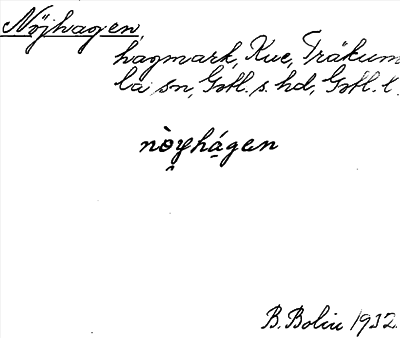 Nöjhagen,
hagmark, Kue, Träkum-
la sn, Gotl. s. hd, Gotl. l.
nòyhágen
B. Bolin 1932.